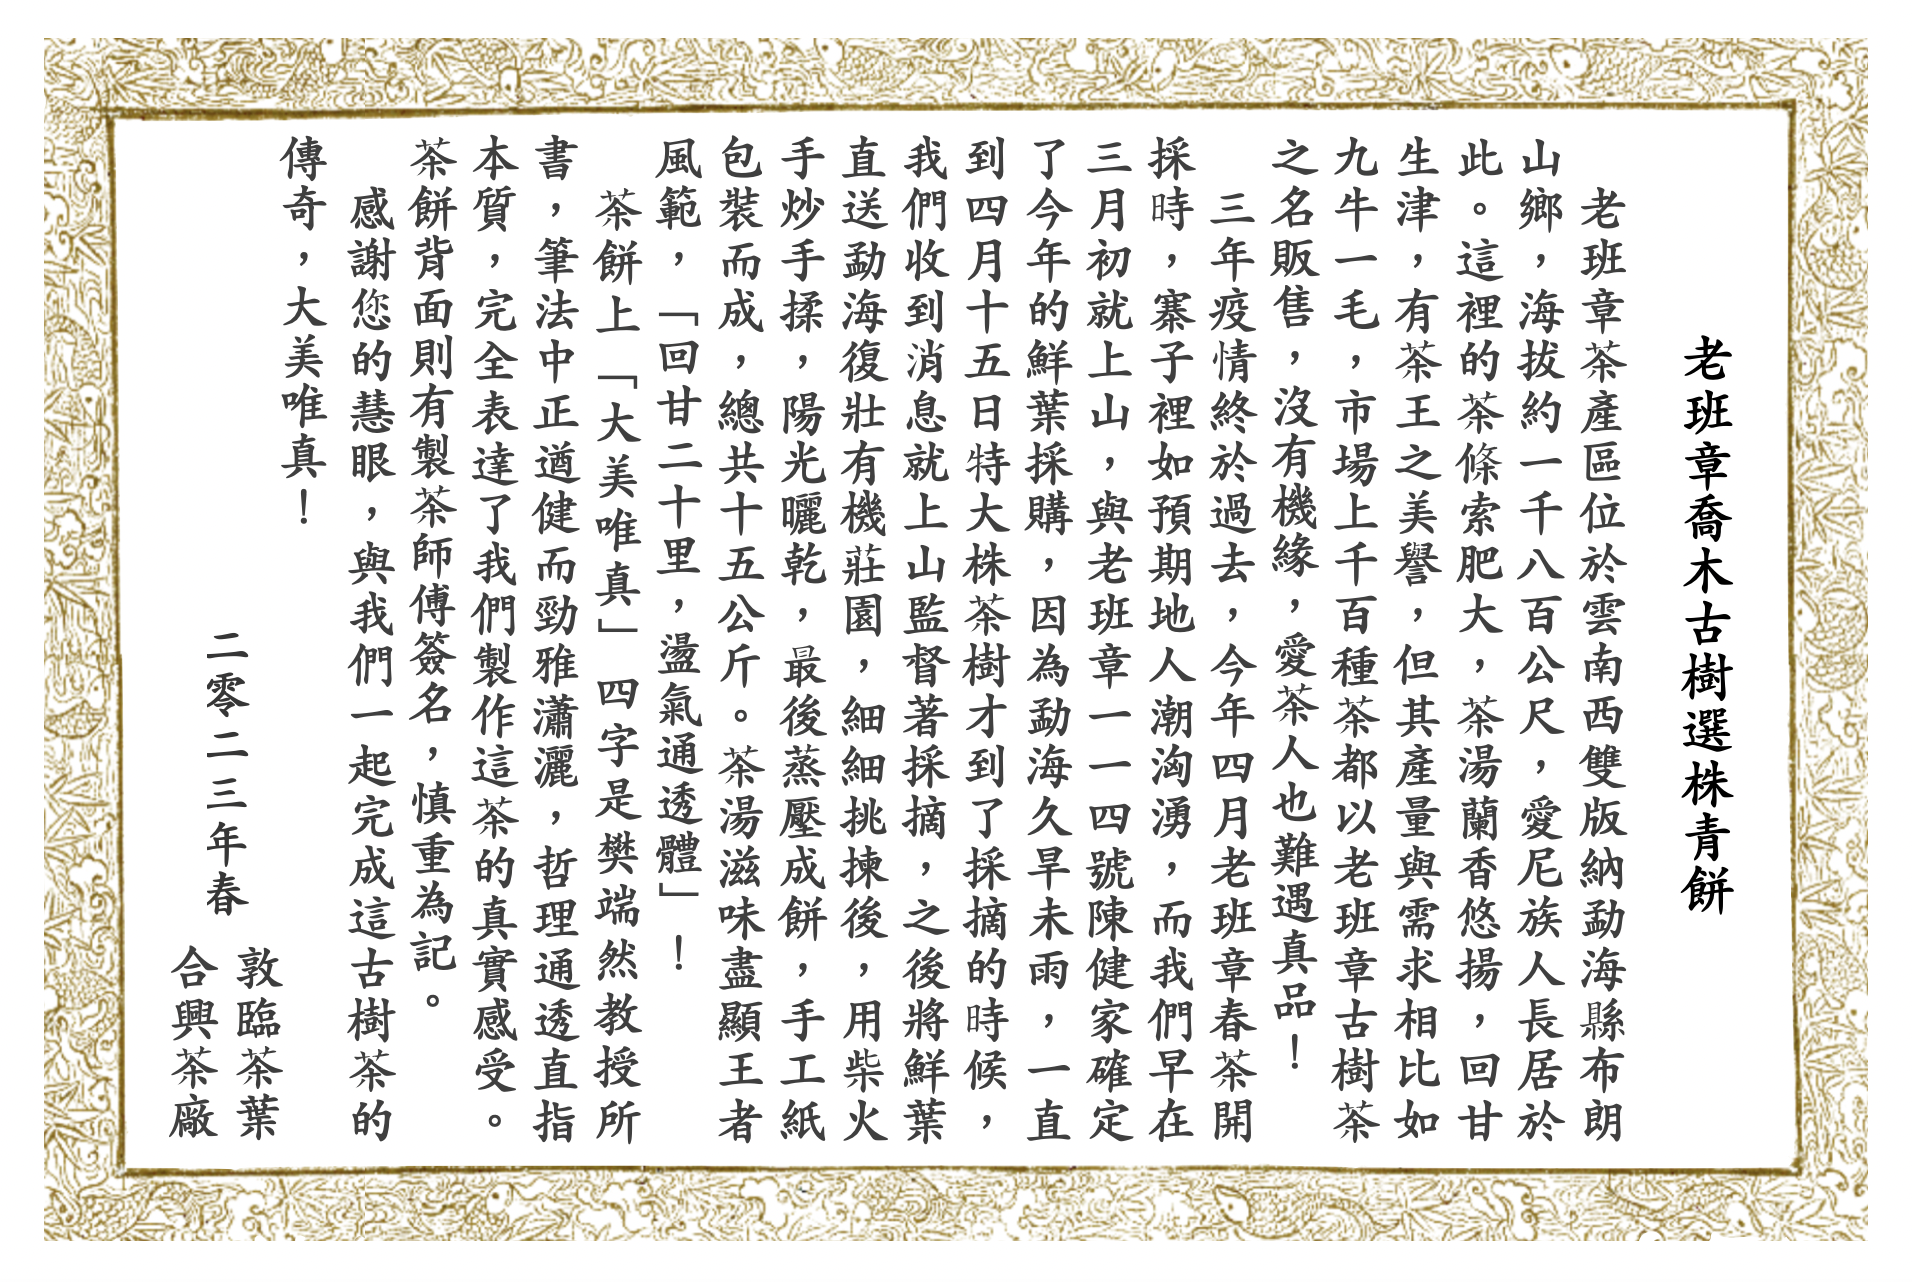 老班章喬木古樹選株青餅
老班章茶產區位於雲南西雙版納勐海縣布朗
山鄉，海拔約一千八百公尺，愛尼族人長居於
此。這裡的茶條索肥大，茶湯蘭香悠揚，回甘
生津，有茶王之美譽，但其產量與需求相比如
九牛一毛，市場上千百種茶都以老班章古樹茶
之名販售，沒有機緣，愛茶人也難遇真品！
三年疫情終於過去，今年四月老班章春茶開
採時，寨子裡如預期地人潮洶湧，而我們早在
三月初就上山，與老班章一一四號陳健家確定
了今年的鮮葉採購，因為勐海久旱未雨，一直
到四月十五日特大株茶樹才到了採摘的時候，
我們收到消息就上山監督著採摘，之後將鮮葉
直送勐海復壯有機莊園，細細挑揀後，用柴火
手炒手揉，陽光曬乾，最後蒸壓成餅，手工紙
包裝而成，總共十五公斤。茶湯滋味盡顯王者
風範，「回甘二十里，盪氣通透體」！
茶餅上「大美唯真」四字是樊端然教授所
書，筆法中正遒健而勁雅瀟灑，哲理通透直指
本質，完全表達了我們製作這茶的真實感受。
茶餅背面則有製茶師傅簽名，慎重為記。
感謝您的慧眼，與我們一起完成這古樹茶的
傳奇，大美唯真！
二零二三年春
敦臨茶葉
合興茶廠